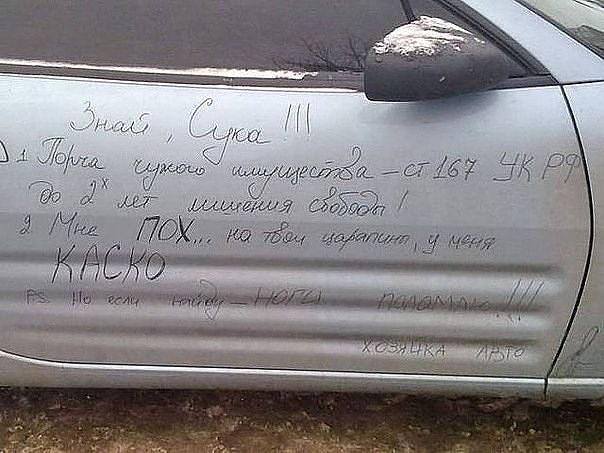 Знай, Сука!!!
1 Порча чужого имущества – ст 167 УК РФ
до 2х лет лишения свободы!
2 Мне ПОХ... на твои царапины, у меня
КАСКО
PS. Но если найду – НОГИ поломлю!!!
ХОЗЯЙКА АВТО